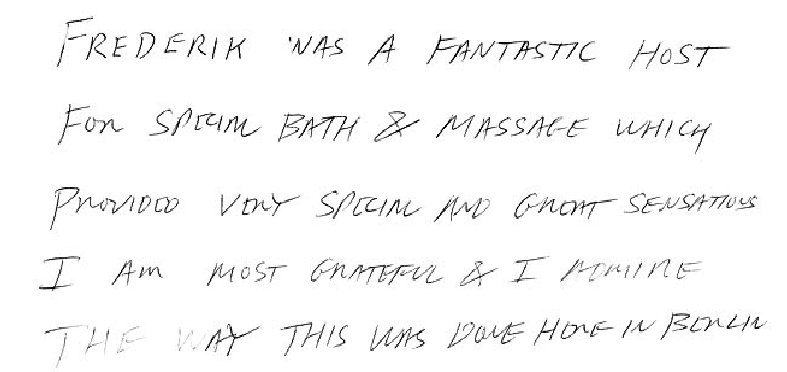 FREDERIK WAS A FANTASTIC HOST
FOR SPECIAL BATH & MASSAGE WHICH
PROVIDED VERY SPECIAL AND GREAT SENSATIONS
I AM MOST GRATEFUL & I ADMIRE
THE WAY THIS WAS DONE HERE IN BERLIN